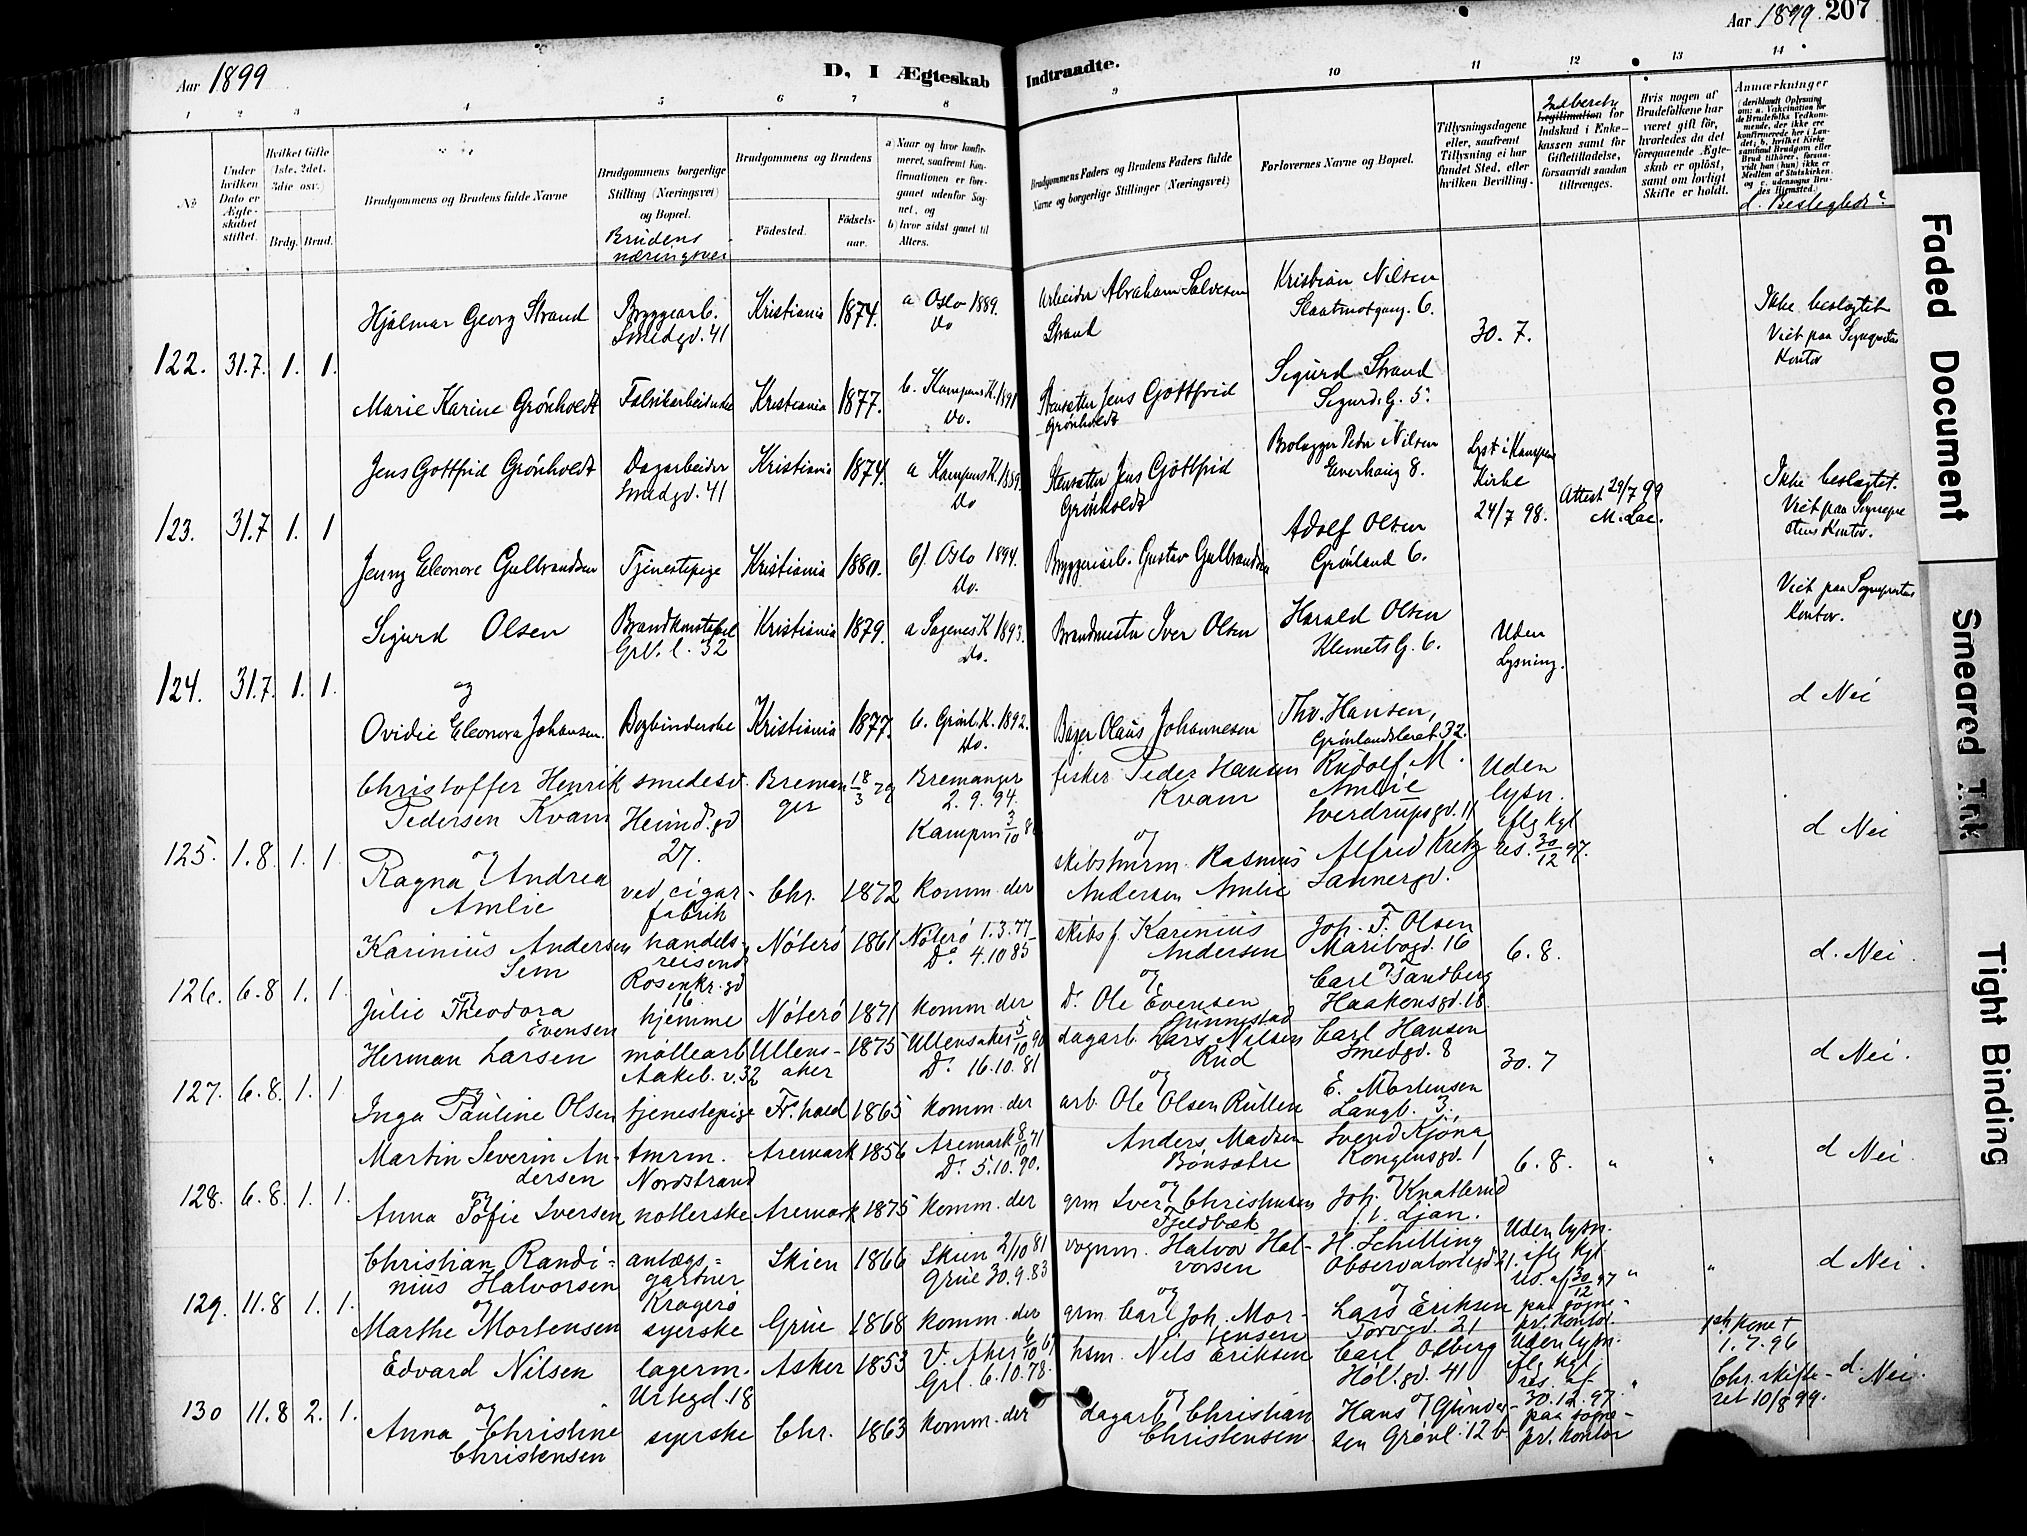 Aar 1899
D, I Ægteskab
Indtraadte.
Aar 1899. 207
1 2 3 4 5 6 7 8 9 10 11 12 13 14
No
Under hvilken Dato er Ægteskabet stiftet.
Hvilket Gifte (1ste, 2det, 3die osv.)
Brdg. Brud.
Brudgommens og Brudens fulde Navne
Brudgommens borgerlige Stilling (Næringsvei) og Bopæl.
Brudens næringsvei
Brudgommens og Brudens
Fødested. Fødselsaar.
a) Naar og hvor konfirmeret, saafremt Konfirmationen er foregaaet udenfor Sognet, og
b) hvor sidst gaaet til Alters.
Brudgommens Faders og Brudens Faders fulde Navne og borgerlige Stillinger (Næringsvei)
Forlovernes Navne og Bopæl.
Tillysningsdagene eller, saafremt Tillysning ei har fundet Sted, efter hvilken Bevilling.
Indberetn.
Legitimation for Indskud i Enkekassen samt for Giftetilladelse, forsaavidt saadan tiltrænges.
Hvis nogen af Brudefolkene har været gift før, hvorledes da det foregaaende Ægteskab er opløst, samt om lovligt Skifte er holdt.
Anmærkninger
(deriblandt Oplysning om: a. Vakcination for de Brudefolks Vedkommende, der ikke ere konfirmerede her i Landet; b. hvilket Kirkesamfund Brudgom eller Brud tilhører, forsaavidt han (hun) ikke er Medlem af Statskirken og c. udensogns Brudes Hjemsted.)
d. Beslegtede?
122. 31.7. 1. 1.
Hjalmar Georg Strand
Bryggearb. Smedgd. 41
Kristiania 1874.
a Oslo 1889. do
Arbeider Abraham Salvesen Strand
Kristian Nilsen
30. 7.
Ikke beslegtet
Viet paa Sogneprestens Kontor
Marie Karine Grønholdt
Fabrikarbeiderske
Kristiania 1877.
b. Kampens K. 1891 do.
Stensætter Jens Gottfrid Grønholdt
Sigurd Strand
Sigurds G. 5.
123. 31.7 1. 1
Jens Gottfrid Grønholdt
Dagarbeider
Smedgd. 41
Kristiania 1874.
a Kampens K. 1889. do
Stensætter Jens Gottfrid Grønholdt
Brolægger Peder Nilsen
Enerhaug 8.
Lyst i Kampen Kirke
24/7 98.
Attest 29/7 99
Ikke beslegtet.
Viet paa Sogneprestens Kontor.
Jenny Eleonore Gulbrandsen
Tjenestepige
Kristiania 1880.
b). Oslo 1894. do.
Bryggeriarb. Gustav Gulbrandsen
Adolf Olsen
Grønland 6.
124. 31.7. 1. 1.
Sigurd Olsen
Brandkonstabel
Grl. l. 32
Kristiania 1879.
a Sagenes K 1893. do.
Brandmester Iver Olsen
Harald Olsen
Klemets G. 6.
Uden Lysning.
Viet paa Sogneprestens Kontor.
d Nei
og
Ovidie Eleonora Johansen.
Bogbinderske
Kristiania 1877.
b. Grønl. K. 1892. do.
Bager Olaus Johannesen
Thv. Hansen,
Grønlandsleret 32.
125. 1.8. 1. 1.
Christoffer Henrik
Pedersen Kvam
smedesv.
Heimd. gd 27.
Bremanger 18/3 79
Bremanger 2. 9. 94.
Kampen 3/10
fisker Peder Hansen Kvam
Rudolf M. Amlie
Sverdrupsgd. 11
Uden lysn. iflg kgl res. 30/12 97.
d Nei
og
Ragna Andrea
Amlie
ved cigarfabrik
Chr. 1872
komm. der
og
skibstmrm. Rasmus
Andersen Amlie
Alfred Kretz
Sannergd.
126. 6.8 1. 1.
Karinius Andersen
Sem
handelsreisende
Rosenkr. gd 16
Nøterø 1861
Nøterø 1.3.77
Do 4.10 85
skibsf. Karinius Andersen
Joh. F. Olsen
Maribogd. 16
6. 8.
d. Nei
og
Julie Theodora Evensen
hjemme
Nøterø 1871
komm. der
og
Do Ole Evensen Gunnestad
og
Carl Tandberg
Haakonsgd. 18
127. 6.8. 1. 1
Herman Larsen
møllearb
Aakeb. v. 32
Ullensaker 1875
Ullensaker 5/10 90
Do 16.10.81
dagarb. Lars Nilsen Rud
Carl Hansen
Smedgd. 8
30. 7
d Nei.
og
Inga Pauline Olsen
tjenestepige
Fr.hald 1865
komm. der
og
arb. Ole Olsen Rullen
og
E. Mortensen
Langb. 3.
128. 6.8. 1. 1.
Martin Severin Andersen
tmrm.
Nordstrand
Aremark 1856
Aremark 8/10 71
Do 5.10.90.
Anders Madsen Bønsætre
Svend Kjøna
Kongensgd. 1
6. 8. " "
d Nei.
og
Anna Tofie Iversen
Aremark 1875
komm. der
og
grm Iver Christensen
Fjeldbæk
og
Joh. Knatterud
Ljan.
129. 11.8 1. 1.
Christian Randinius Halvorsen
anlægsgartner
Kragerø
Skien 1866
Skien 2/10 81
Grue 30.9.83
vognm. Halvor Halvorsen
H. Schilling
Observatoriegd 21.
Uden lysn. iflg kgl res. af 30/12 97
paa sognepr. kontor
" "
d Nei.
og
Marthe Mortensen
syerske
Grue 1868
komm. der
og
grm. Carl Joh. Mortensen
og
Lars Eriksen
Torvgd. 21
130 11.8 2. 1.
Edvard Nilsen
lagerm.
Urtegd. 18
Asker 1853
V. Aker 6/10 67
Grl. 6.10.78.
hsm. Nils Eriksen
Carl Olberg
Holt. gd. 41
Uden lysn. iflg kgl. res. af 30.12.97.
paa sognepr. kontor
"
1ste kone †
1. 7. 96
Chr. skifteret 10/8 99.
d. Nei.
og
Anna Christine
Christensen
syerske
Chr. 1863
komm. der
og
dagarb. Christian
Christensen
og
Hans Gundersen Grønl. 12 b
Faded Document
Smeared Ink
Tight Binding